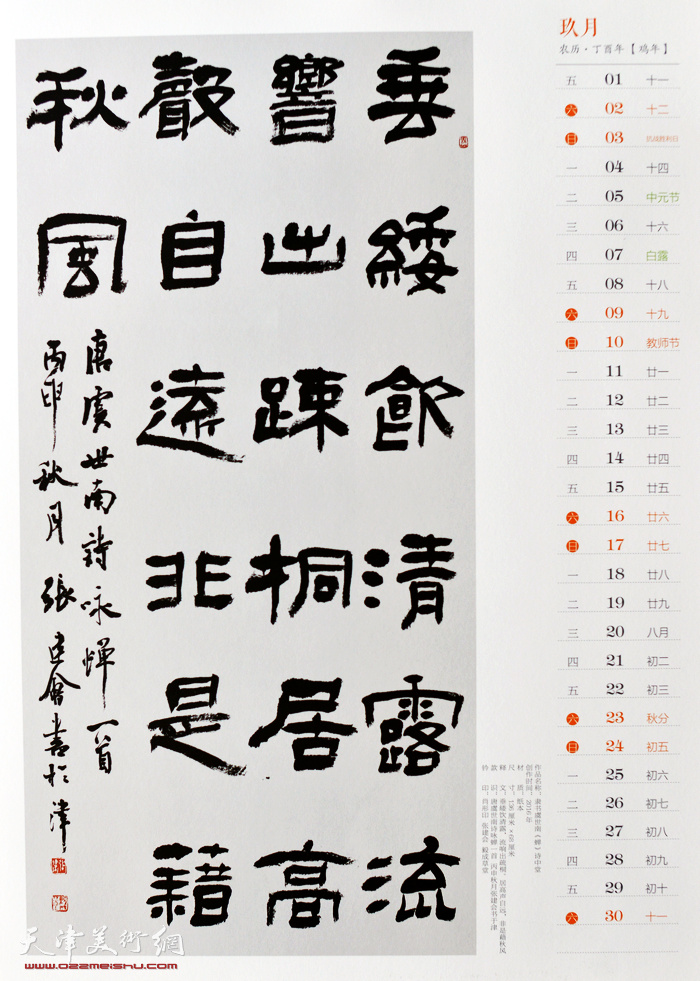 垂緌飲清露流
響出疎桐居高
聲自遠非是藉
秋風
唐虞世南詩咏蟬一首
丙申秋月張建會書於津
玖月
农历·丁酉年【鸡年】
五 01 十一
六 02 十二
日 03 抗战胜利日
一 04 十四
二 05 中元节
三 06 十六
四 07 白露
五 08 十八
六 09 十九
日 10 教师节
一 11 廿一
二 12 廿二
三 13 廿三
四 14 廿四
五 15 廿五
六 16 廿六
日 17 廿七
一 18 廿八
二 19 廿九
三 20 八月
四 21 初二
五 22 初三
六 23 秋分
日 24 初五
一 25 初六
二 26 初七
三 27 初八
四 28 初九
五 29 初十
六 30 十一
作品名称：隶书虞世南《蝉》诗中堂
创作时间：2016年
材 质：纸本
尺 寸：136厘米×68厘米
释 文：垂緌饮清露，流响出疏桐。居高声自远，非是藉秋风
款 识：唐虞世南诗咏蝉一首 丙申秋月张建会书于津
钤 印：肖形印 张建会 毅成草堂
天津美術網
www.022meishu.com